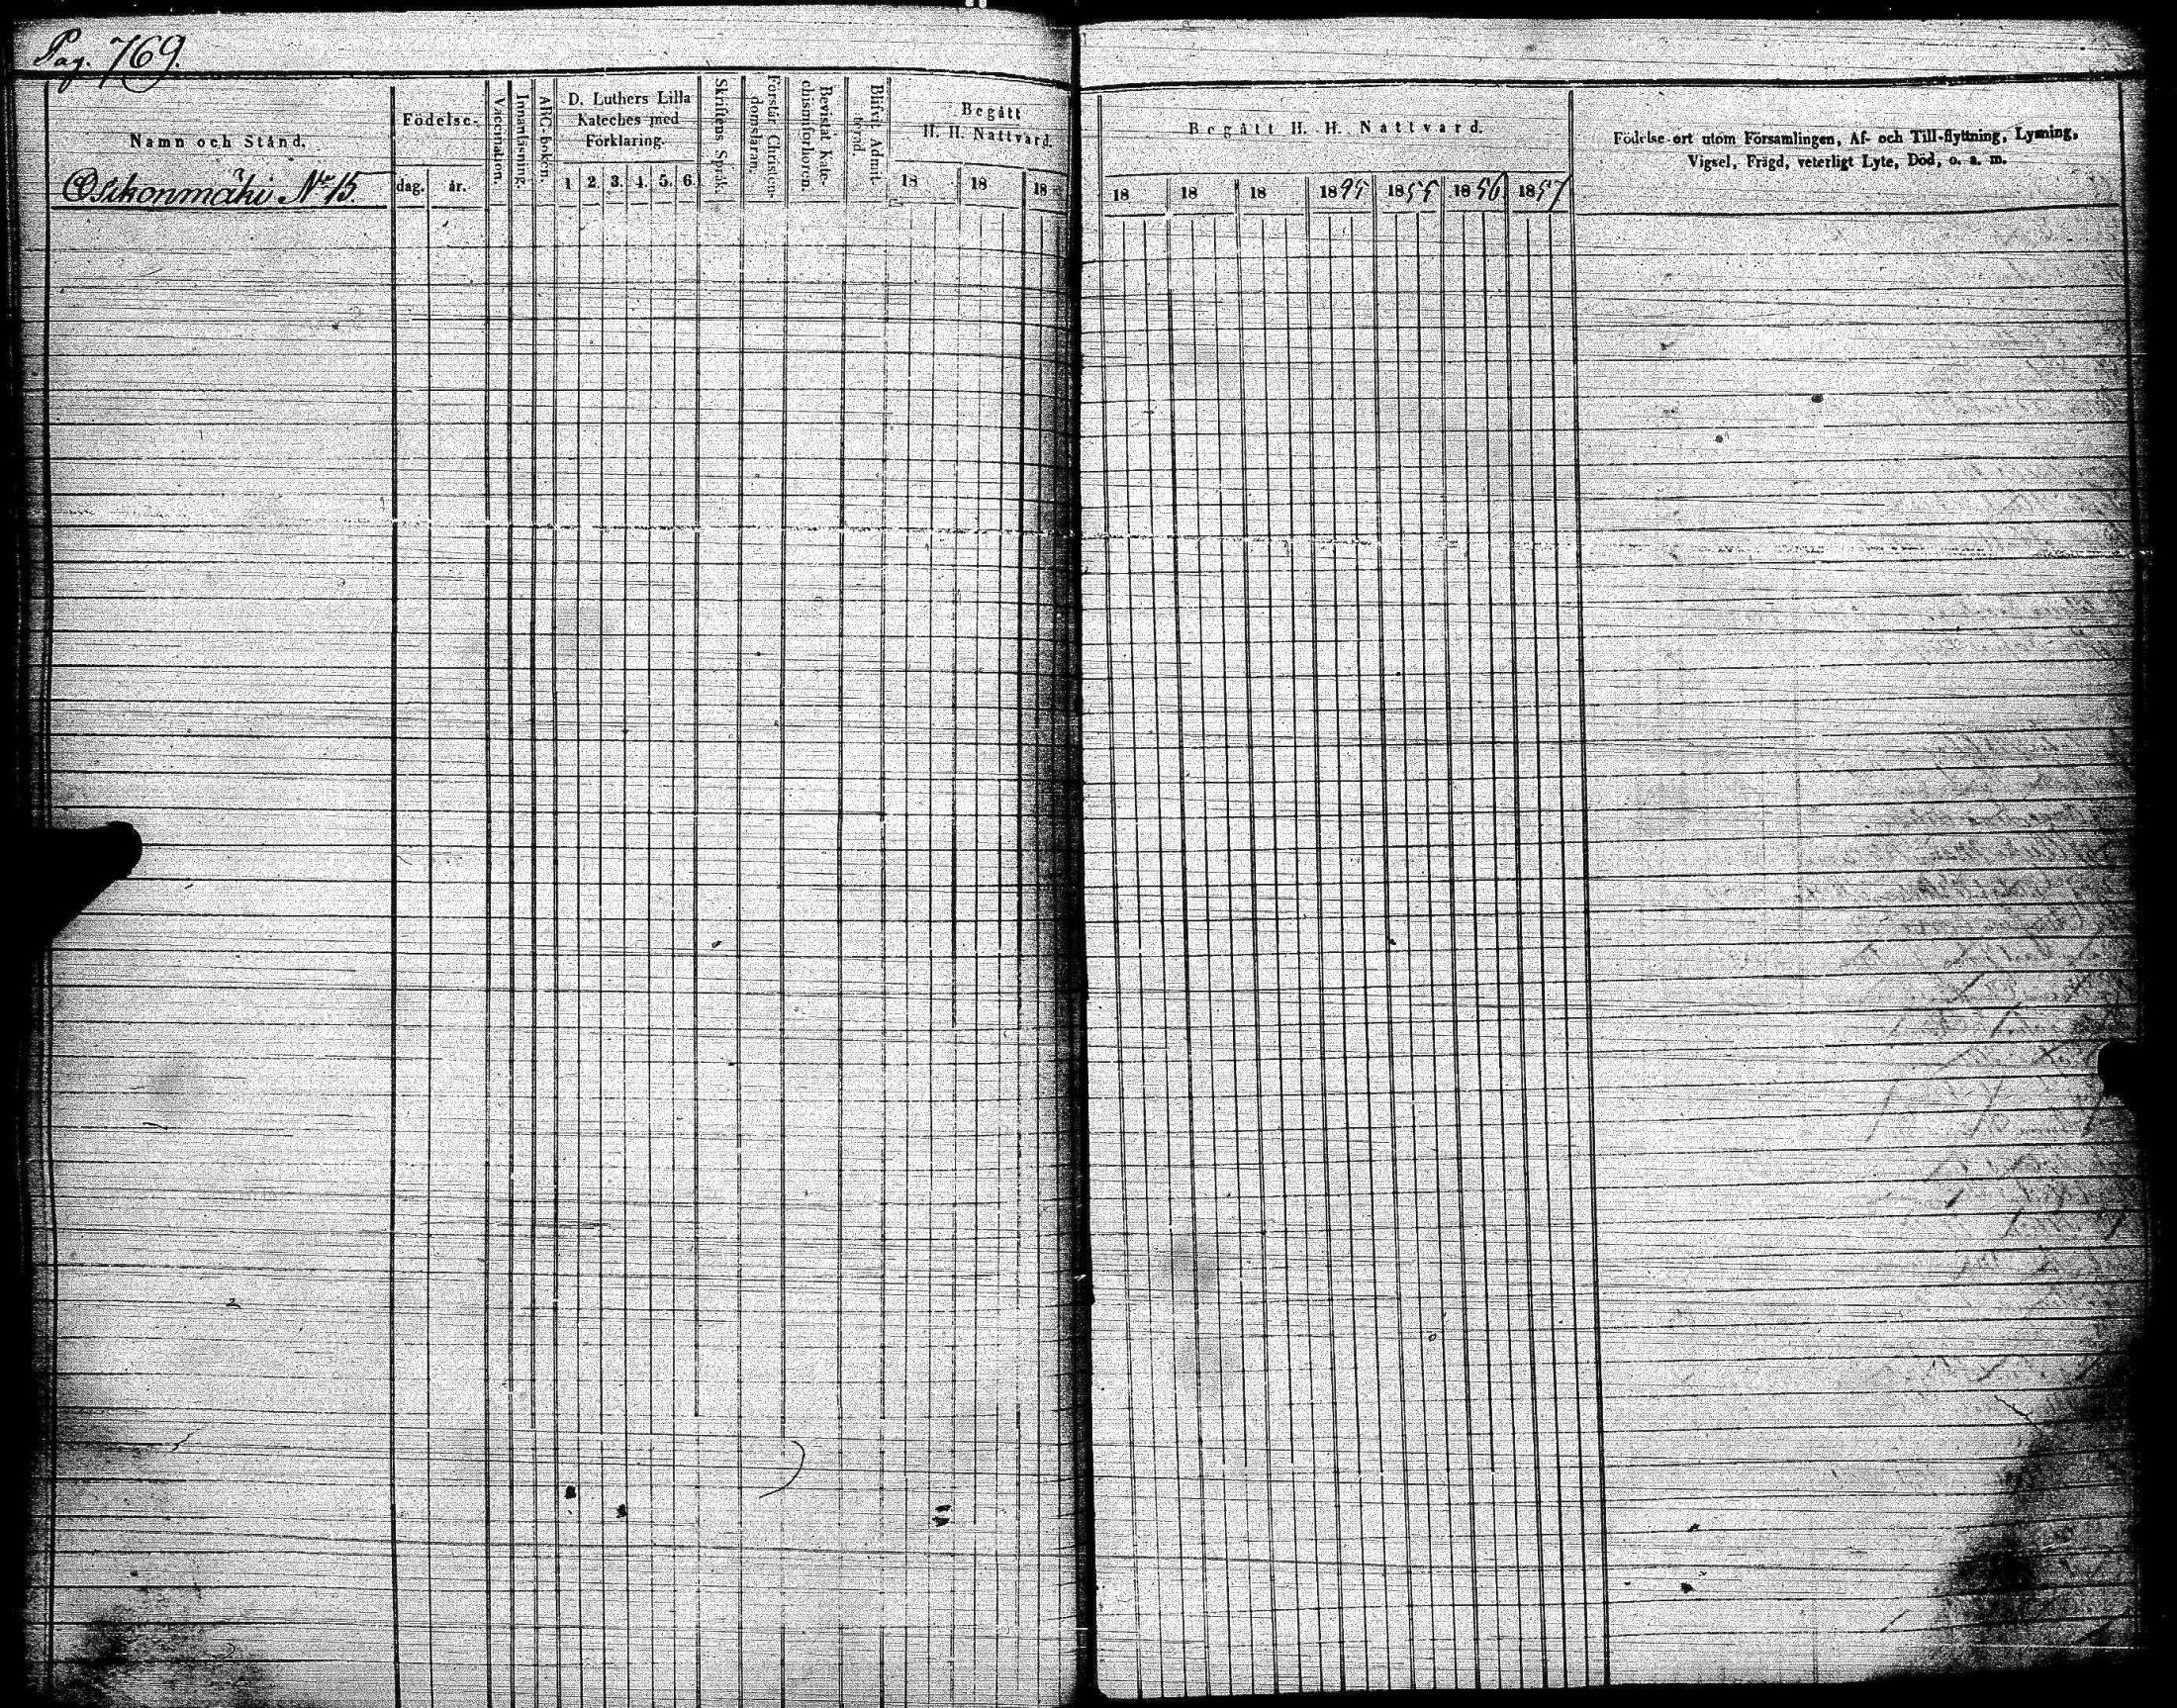 Pag. 769.
Namn och Stånd.
Osikonmäki No 15.
Födelse-
dag. år.
Vaccination.
Innanläsning.
ABC-boken.
D. Luthers Lilla
Kateches med
Förklaring.
1 2. 3. 4. 5. 6.
Skriftens Språk.
Förstår Christen-
domsläran.
Bevistat Kate-
chismiförhören.
Blifvit Admit-
terad.
Begått
H. H. Nattvard.
18 18 18
Begått H. H. Nattvard.
18 18 18 1895 1855 1856 1857
Födelse-ort utom Församlingen, Af- och Till-flyttning, Lysning,
Vigsel, Frägd, veterligt Lyte, Död, o. s. m.